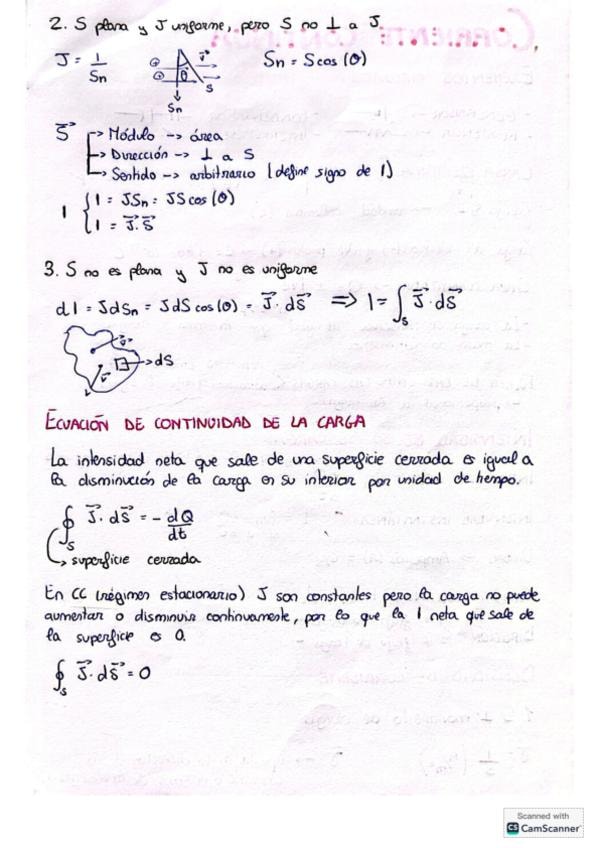 2. S plana y J uniforme, pero S no ⊥ a J.
J = I/Sn
Sn = S cos (θ)
v⃗
θ
S
Sn
S⃗
→ Módulo → área
→ Dirección → ⊥ a S
→ Sentido → arbitrario (define signo de I)
I { I = JSn = JS cos (θ)
I = J⃗ · S⃗
3. S no es plana y J no es uniforme
dI = JdSn = JdS cos (θ) = J⃗ · dS⃗ ⇒ I = ∫S J⃗ · dS⃗
→ dS
ECUACIÓN DE CONTINUIDAD DE LA CARGA
La intensidad neta que sale de una superficie cerrada es igual a
la disminución de la carga en su interior por unidad de tiempo.
∮S J⃗ · dS⃗ = - dQ/dt
→ superficie cerrada
En CC (régimen estacionario) J son constantes pero la carga no puede
aumentar o disminuir continuamente, por lo que la I neta que sale de
la superficie es 0.
∮S J⃗ · dS⃗ = 0
Scanned with
CS CamScanner